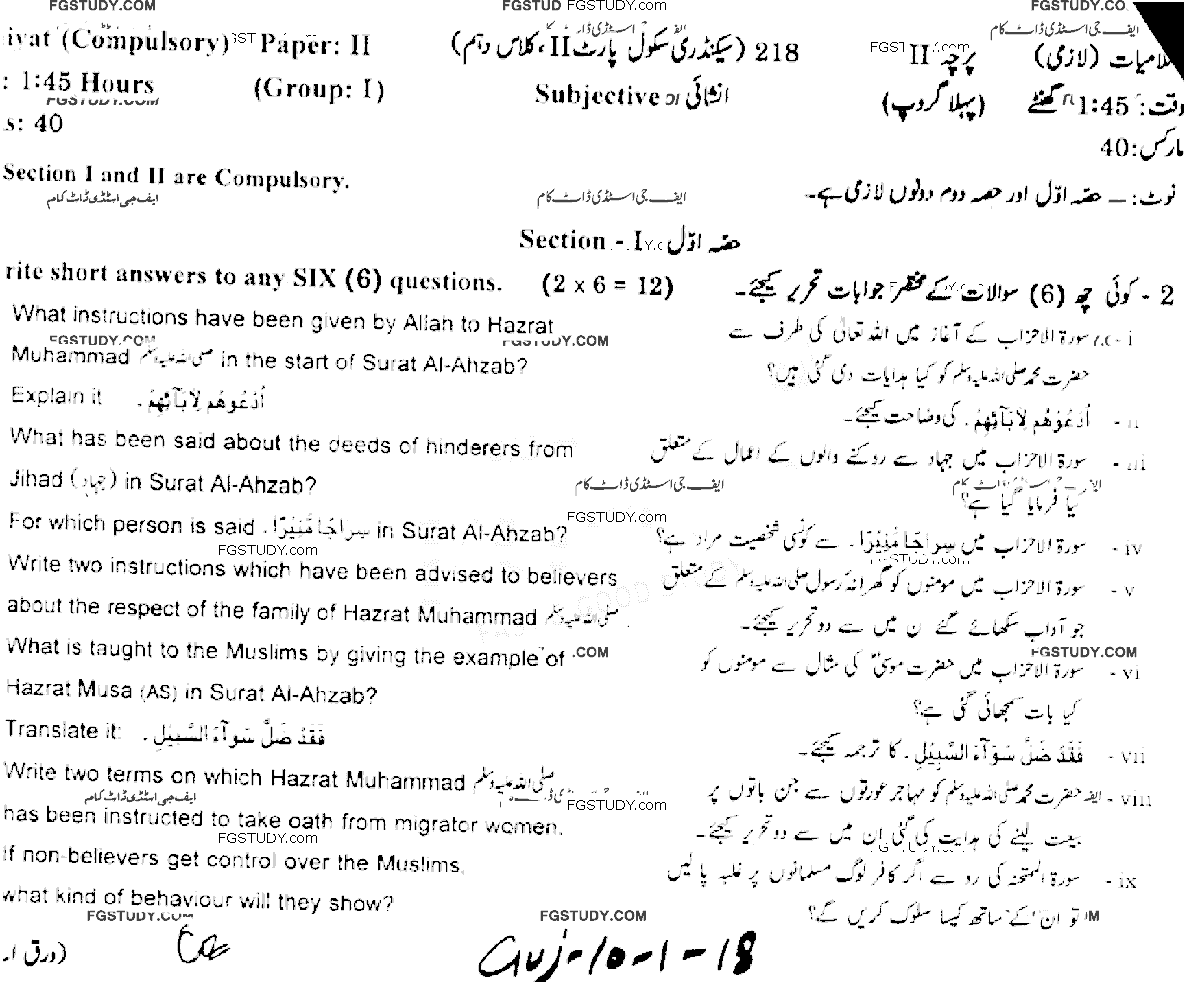 FGSTUDY.COM FGSTUD FGSTUDY.COM FGSTUDY.CO
iyat (Compulsory) Paper: II 218 (سیکنڈری سکول پارٹ II، کلاس دہم) پرچہ II اسلامیات (لازمی)
: 1:45 Hours (Group: I) Subjective انشائی (پہلا گروپ) وقت: 1:45 گھنٹے
FGSTUDY.COM
s: 40 مارکس: 40
Section I and II are Compulsory. نوٹ: ۔ حصہ اوّل اور حصہ دوم دونوں لازمی ہے۔
ایف جی اسٹڈی ڈاٹ کام ایف جی اسٹڈی ڈاٹ کام
Section - I حصہ اوّل
rite short answers to any SIX (6) questions. (2 x 6 = 12) 2 - کوئی چھ (6) سوالات کے مختصر جوابات تحریر کیجئے۔
What instructions have been given by Allah to Hazrat i - سورۃ الاحزاب کے آغاز میں اللہ تعالیٰ کی طرف سے
FGSTUDY.COM FGSTUDY.COM
Muhammad صلی اللہ علیہ وسلم in the start of Surat Al-Ahzab? حضرت محمد صلی اللہ علیہ وسلم کو کیا ہدایات دی گئی ہیں؟
Explain it اُدْعُوْهُم لِاٰبَآئِهِمْ۔ ii - اُدْعُوْهُم لِاٰبَآئِهِمْ۔ کی وضاحت کیجئے۔
What has been said about the deeds of hinderers from iii - سورۃ الاحزاب میں جہاد سے روکنے والوں کے اعمال کے متعلق
Jihad (جہاد) in Surat Al-Ahzab? ایف جی اسٹڈی ڈاٹ کام ایف جی اسٹڈی ڈاٹ کام
کیا فرمایا گیا ہے؟
FGSTUDY.com
For which person is said سِرَاجًا مُّنِیْرًا۔ in Surat Al-Ahzab? iv - سورۃ الاحزاب میں سِرَاجًا مُّنِیْرًا۔ سے کونسی شخصیت مراد ہے؟
FGSTUDY.com FGSTUDY.com
Write two instructions which have been advised to believers v - سورۃ الاحزاب میں مومنوں کو گھرانہ رسول صلی اللہ علیہ وسلم کے متعلق
about the respect of the family of Hazrat Muhammad صلی اللہ علیہ وسلم جو آداب سکھائے گئے ن میں سے دو تحریر کیجئے۔
What is taught to the Muslims by giving the example of .COM FGSTUDY.COM vi - سورۃ الاحزاب میں حضرت موسیٰؑ کی مثال سے مومنوں کو
Hazrat Musa (AS) in Surat Al-Ahzab? کیا بات سمجھائی گئی ہے؟
Translate it: فَقَدْ ضَلَّ سَوَآءَ السَّبِیْلِ۔ vii - فَقَدْ ضَلَّ سَوَآءَ السَّبِیْلِ۔ کا ترجمہ کیجئے۔
Write two terms on which Hazrat Muhammad صلی اللہ علیہ وسلم viii - حضرت محمد صلی اللہ علیہ وسلم کو مہاجر عورتوں سے جن باتوں پر
ایف جی اسٹڈی ڈاٹ کام FGSTUDY.com
has been instructed to take oath from migrator women. بیعت لینے کی ہدایت کی گئی ان میں سے دو تحریر کیجئے۔
FGSTUDY.com
If non-believers get control over the Muslims, ix - سورۃ الممتحنہ کی رو سے اگر کافر لوگ مسلمانوں پر غلبہ پا لیں
what kind of behaviour will they show? تو ان کے ساتھ کیسا سلوک کریں گے؟
FGSTUDY.COM FGSTUDY.COM
(ورق ا Guj-10-1-18